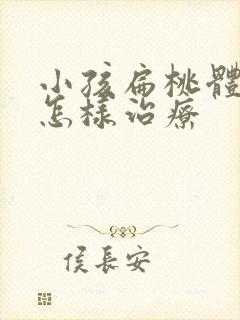 小孩扁桃體
怎樣治療
侯長安